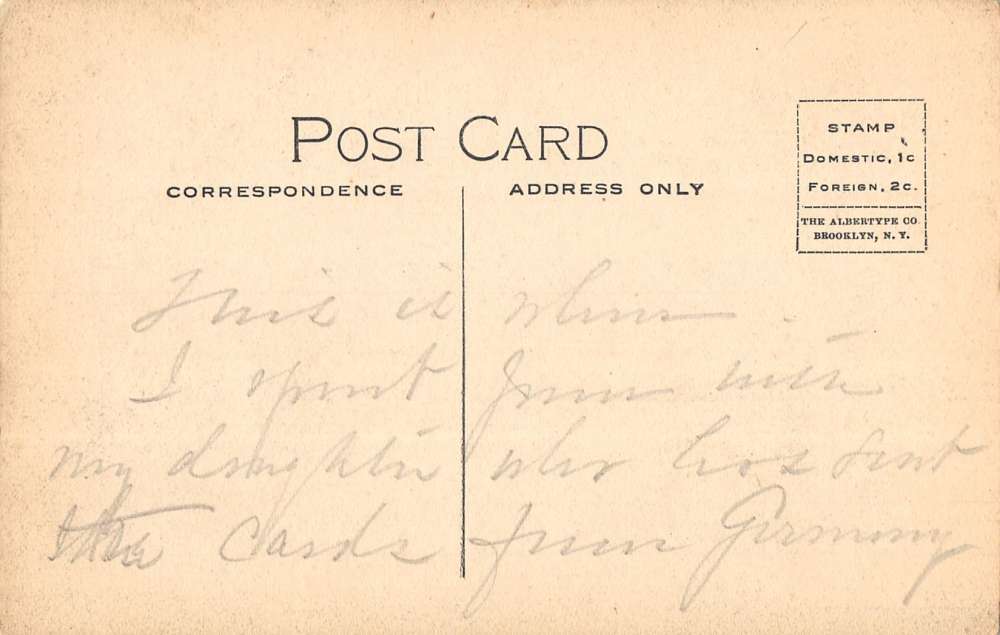 POST CARD
CORRESPONDENCE
ADDRESS ONLY
STAMP
DOMESTIC, 1C
FOREIGN, 2C.
THE ALBERTYPE CO
BROOKLYN, N. Y.
This is where
I spent June with
my daughter who has sent
the cards from Germany